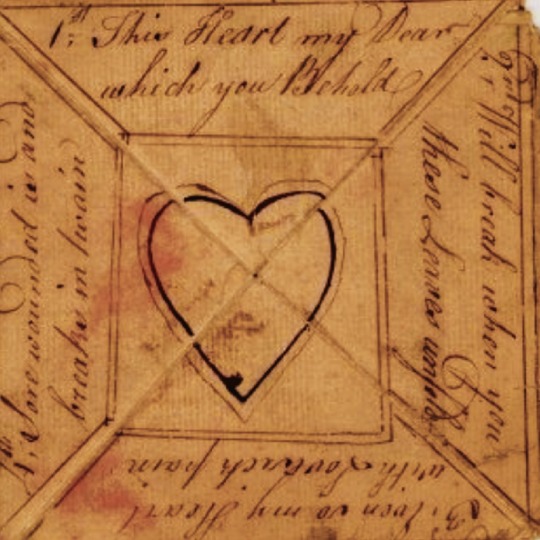 1:st This Heart my Dear
which you Behold
2: Will break when you
these Leaves unfold
3: Even so my Heart
with Lovesick pain
4:th Sore wounded is and
breaks in twain